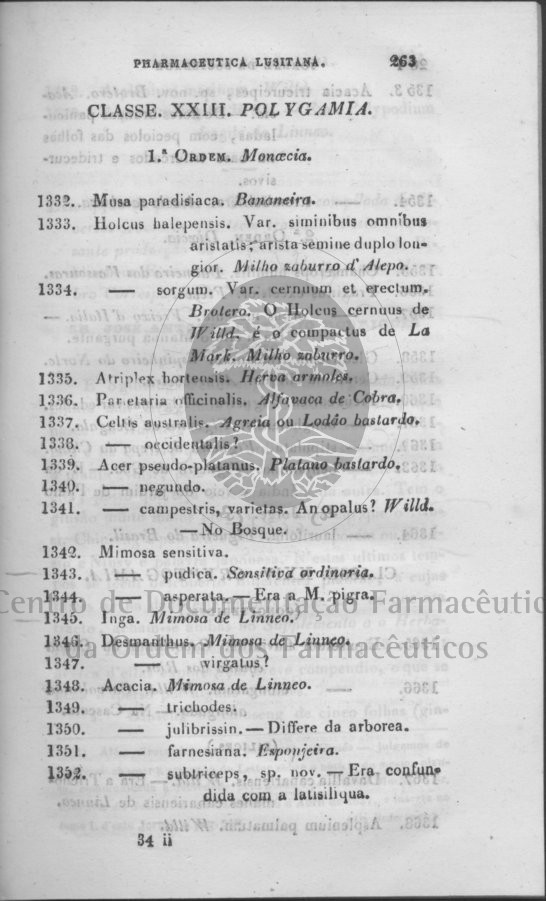 PHARMACEUTICA LUSITANA. 263
CLASSE. XXIII. POLYGAMIA.
1.ª ORDEM. Monœcia.
1332. Musa paradisiaca. Bananeira.
1333. Holcus halepensis. Var. siminibus omnibus
aristatis; arista semine duplo lon-
gior. Milho zaburro d'Alepo.
1334. — sorgum. Var. cernuum et erectum.
Brotero. O Holcus cernuus de
Willd. é o compactus de La
Mark. Milho zaburro.
1335. Atriplex hortensis. Herva armoles.
1336. Parietaria officinalis. Alfavaca de Cobra.
1337. Celtis australis. Agreia ou Lodão bastardo.
1338. — occidentalis?
1339. Acer pseudo-platanus. Platano bastardo.
1340. — negundo.
1341. — campestris, varietas. An opalus? Willd.
— No Bosque.
1342. Mimosa sensitiva.
1343. — pudica. Sensitiva ordinaria.
1344. — asperata. — Era a M. pigra.
Centro de Documentação Farmacêutic
1345. Inga. Mimosa de Linneo.
1346. Desmanthus. Mimosa de Linneo.
da Ordem dos Farmacêuticos
1347. — virgatus?
1348. Acacia. Mimosa de Linneo.
1349. — trichodes.
1350. — julibrissin. — Differe da arborea.
1351. — farnesiana. Esponjeira.
1352. — subtriceps, sp. nov. — Era confun-
dida com a latisiliqua.
34 ii